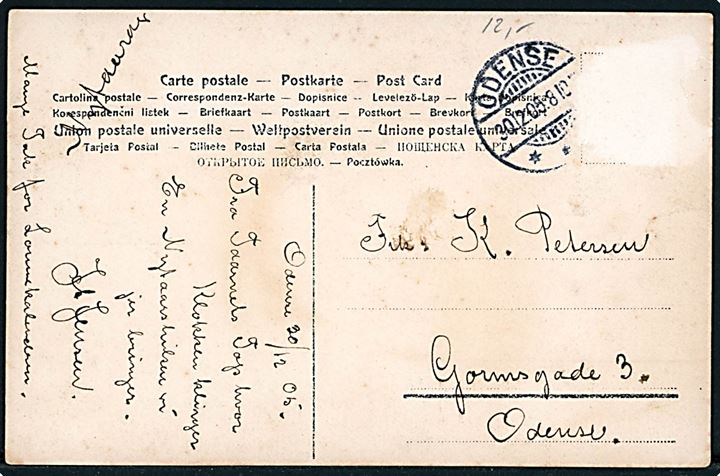 12,-
Carte postale — Postkarte — Post Card
Cartolina postale — Correspondenz-Karte — Dopisnice — Levelező-Lap — Karta Dopisnica
Korespondenční listek — Briefkaart — Postkaart — Postkort — Brevkort
Union postale universelle — Weltpostverein — Unione postale universale
Tarjeta Postal — Bilhete Postal — Carta Postala — ПОЩЕНСКА КАРТА
ОТКРЫТОЕ ПИСЬМО. — Pocztówka.
ODENSE
30.12.05 8.10
Odense 30/12 05.
Fra Taarnets Top hvor
Klokken klinger
En Nytaarshilsen vi
jer bringer.
Jensen.
Mange Tak for Lommekalenderen.
K. Petersen
Gormsgade 3.
Odense.